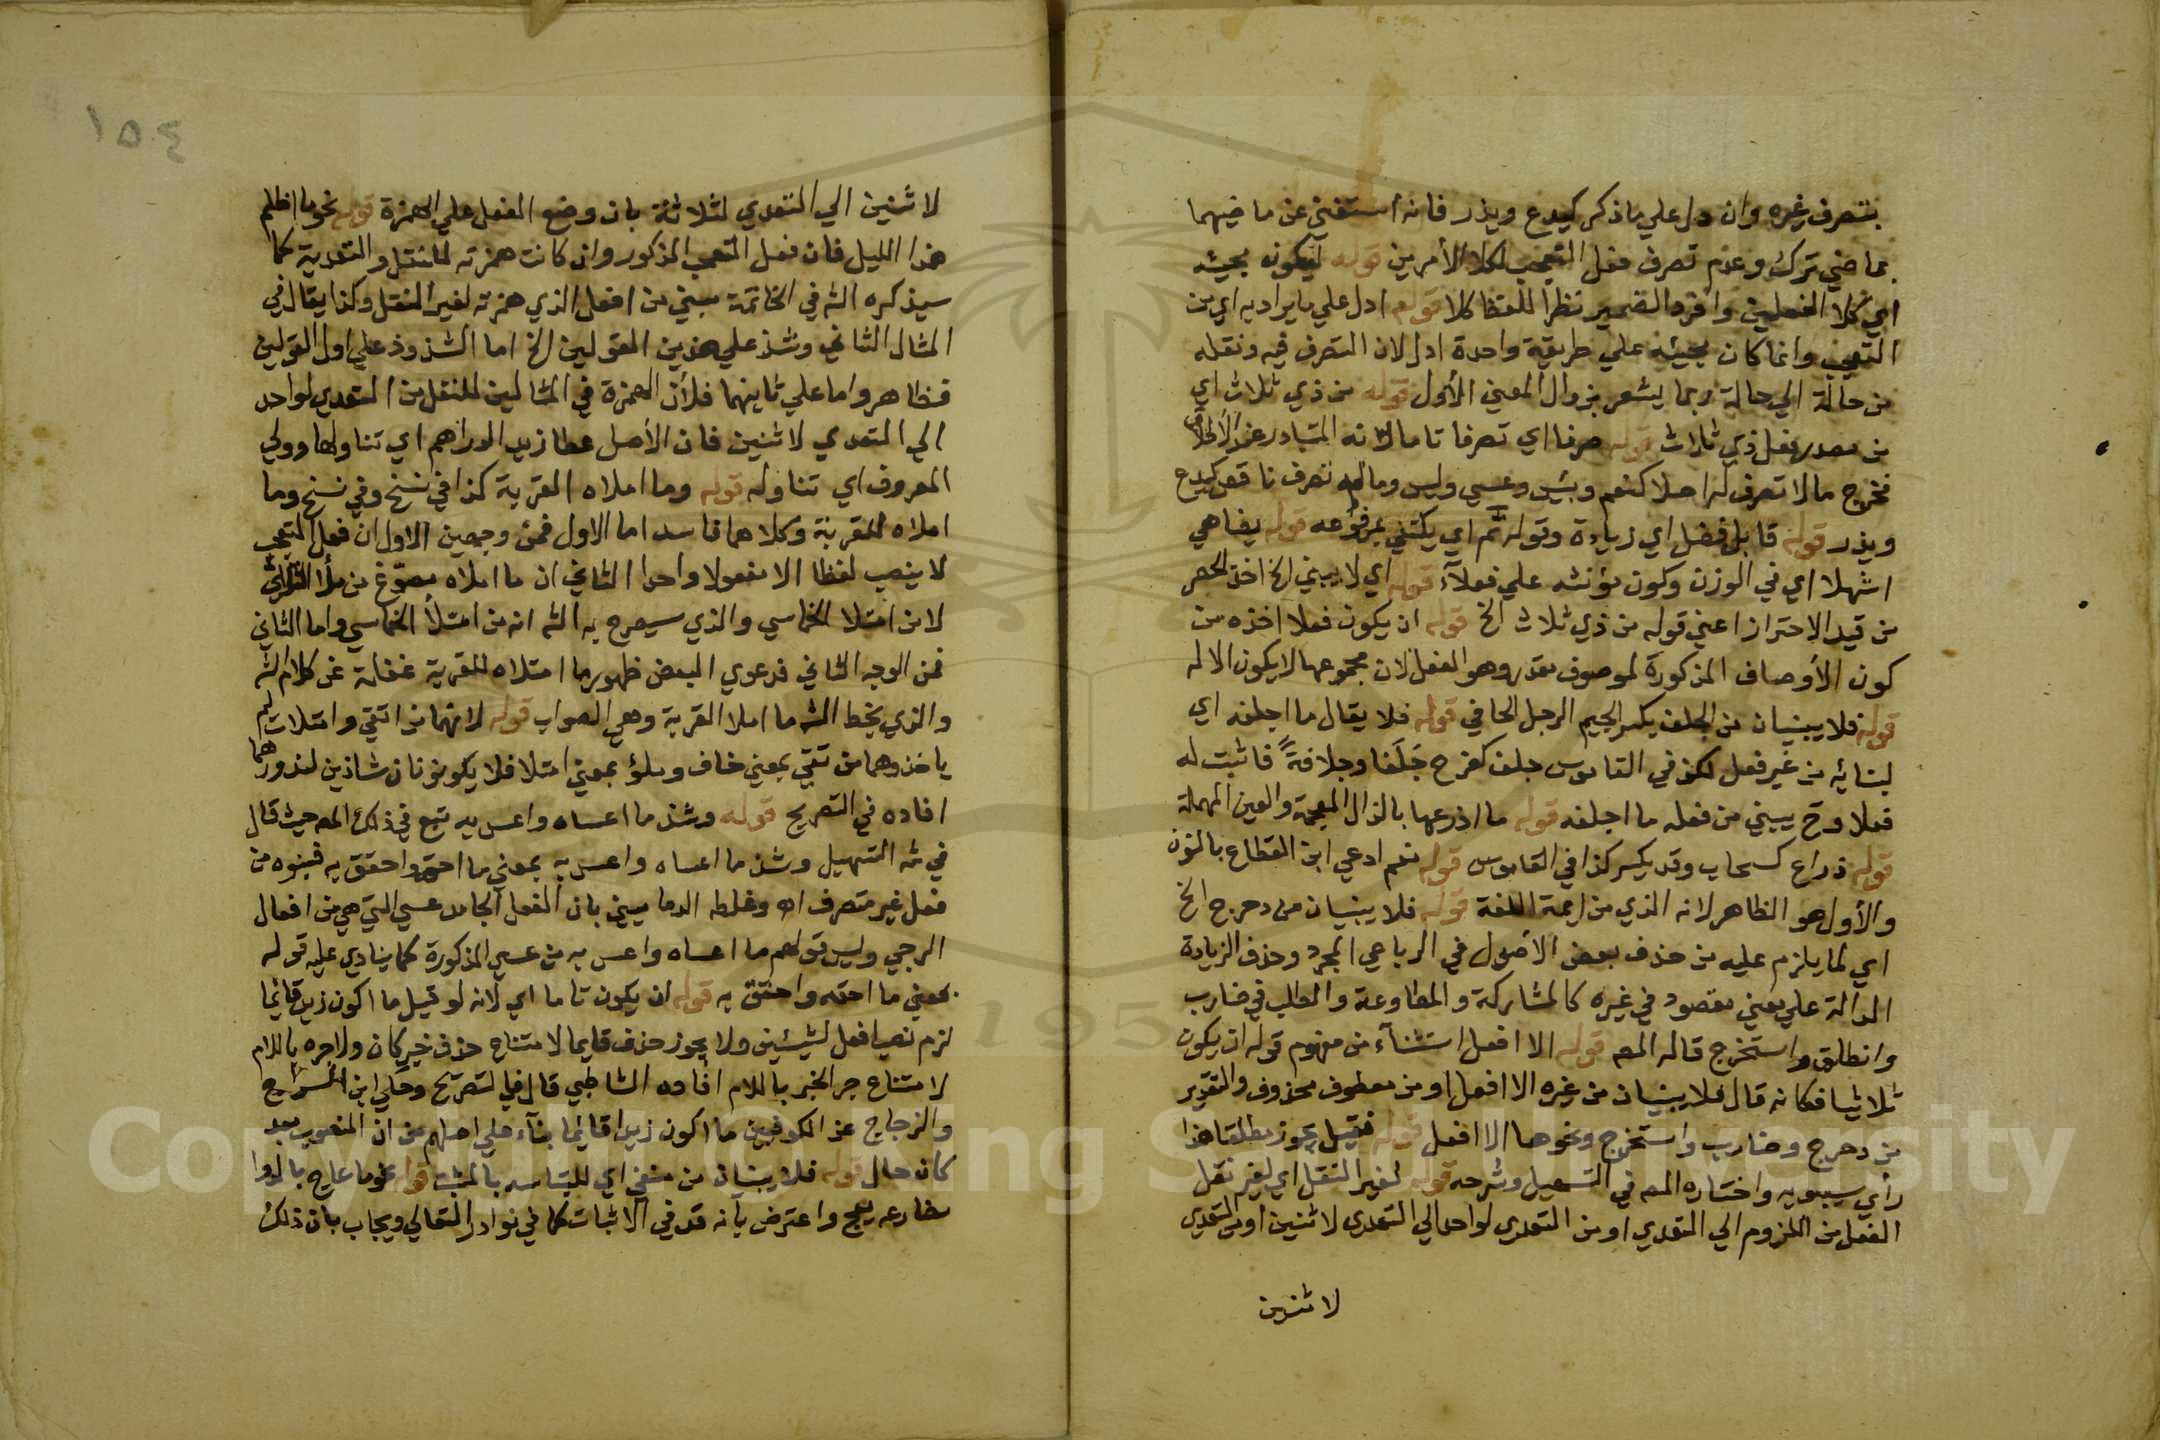 بتصرف غيره وان دل علي ما ذكر كيدع ويذر فانه استغني عن ماضيهما
بماضي ترك وعدم تصرف فعل التعجب لكلا الأمرين قوله ليكون مجيئه
اي كلا الفعلين وافرد الضمير نظرا للفظ كلا قوله ادل علي ما يراد به اي من
التعجب وانما كان مجيئه علي طريقة واحدة ادل لان التصرف فيه ونقله
من حالة الي حالة ربما يشعر بزوال المعني الأول قوله من ذي ثلاث اي
من مصدر فعل ذي ثلاث قوله صرفا اي تصرفا تاما لانه المتبادر عند الاطلاق
فخرج ما لا تصرف له اصلا كنعم وبئس وعسي وليس وماله تصرف ناقص كيدع
ويذر قوله قابل فضل اي زيادة وقوله تم اي يكتفي بمرفوعه قوله يضاهي
اشهلا اي في الوزن وكون مؤنثه علي فعلآء قوله اي لا يبني الخ اخذ الحصر
من قيد الاحتراز اعني قوله من ذي ثلاث الخ قوله ان يكون فعلا اخذه من
كون الأوصاف المذكورة لموصوف مقدر وهو الفعل لان مجموعها لا يكون الا له
قوله فلا يبنيان من الجلف بكسر الجيم الرجل الجافي قوله فلا يقال ما اجلفه اي
لبنائه من غير فعل لكن في القاموس جلف كفرح جَلَفا وجلافةً فاثبت له
فعلا وح يبني من فعله ما اجلفه قوله ما اذرعها بالذال المعجمة والعين المهملة
قوله ذراع كسحاب وقد يكسر كذا في القاموس قوله نعم ادعي ابن القطاع بالنون
والأول هو الظاهر لانه الذي من ايمة اللغة قوله فلا يبنيان من دحرج الخ
اي لما يلزم عليه من حذف بعض الأصول في الرباعي المجرد وحذف الزيادة
الدالة علي معني مقصود في غيره كالمشاركة والمطاوعة والطلب في ضارب
وانطلق واستخرج قاله المص قوله الا افعل استثنآء من مفهوم قوله ان يكون
ثلاثيا فكانه قال فلا يبنيان من غيره الا افعل او من معطوف محذوف والتقدير
من دحرج وضارب واستخرج ونحوها الا افعل قوله فقيل يجوز مطلقا هذا
رأي سيبويه واختاره المص في التسهيل وشرحه قوله لغير النقل اي لغير نقل
الفعل من اللزوم الي التعدي او من التعدي لواحد الي التعدي لاثنين او من التعدي
لاثنين
١٥٤
لاثنين الي التعدي لثلاثة بان وضع الفعل علي الهمزة قوله نحو ما اظلم
هذا الليل فان فعل التعجب المذكور وان كانت همزته للنقل والتعدية كما
سيذكره الش في الخاتمة مبني من افعل الذي همزته لغير النقل وكذا يقال في
المثال الثاني وشذ علي هذين القولين الخ اما الشذوذ علي اول القولين
فظاهر واما علي ثانيهما فلأن الهمزة في المثالين للنقل من التعدي لواحد
الي التعدي لاثنين فان الأصل عطا زيد الدراهم اي تناولها وولي
المعروف اي تناوله قوله وما املاه القربة كذا في نسخ وفي نسخ وما
املاه للقربة وكلاهما فاسد اما الاول فمن وجهين الاول ان فعل التعجب
لا ينصب لفظا الا مفعولا واحدا الثاني ان ما املاه مصوّغ من ملأ الثلاثي
لا من امتلا الخماسي والذي سيصرح به الش انه من امتلأ الخماسي واما الثاني
فمن الوجه الثاني فدعوي البعض ظهور ما امتلاه للقربة غفلة عن كلام الش
والذي بخط الش ما املا القربة وهي الصواب قوله لانهما من اتقي وامتلات لم
ياخذوهما من تقي بمعني خاف وملؤ بمعني امتلا فلا يكونان شاذين لندورهما
افاده في التصريح قوله وشذ ما اعساه واعس به تبع في ذلك المص حيث قال
في شه التسهيل وشذ ما اعساه واعس به بمعني ما احقه واحقق به فبنوه من
فعل غير متصرف اه وغلطه الدماميني بان الفعل الجامد عسي التي هي من افعال
الرجي وليس قولهم ما اعساه واعس به من عسي المذكورة كما ينادي عليه قوله
بمعني ما احقه واحقق به قوله ان يكون تاما اي لانه لو قيل ما اكون زيد قائما
لزم نصب افعل لشيئين ولا يجوز حذف قايما لامتناع حذف خبر كان ولا جره باللام
لامتناع جر الخبر باللام افاده الشاطبي قال في التصريح وحكي ابن السراج
والزجاج عن الكوفيين ما اكون زيدا قائما بنآء علي اصلهم من ان المنصوب بعد
كان حال قوله فلا يبنيان من منفي اي للالتباسه بالمثبت قوله نحو ما عاج بالدوا
مضارعه يعيج واعترض بانه قد في الاثبات كما في نوادر القالي ويجاب بان ذلك